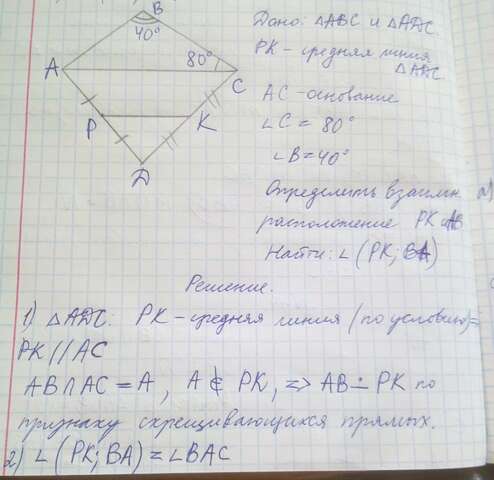 B
40°
A
80°
C
P
K
D
Дано: △ABC и △ADC.
PK - средняя линия
△ADC
AC - основание
∠C = 80°
∠B = 40°
Определить взаимн
расположение PK и AB
Найти: ∠(PK; BA)
Решение.
1) △ADC: PK - средняя линия (по условию) =>
PK // AC
AB ∩ AC = A, A ∉ PK, => AB ∸ PK по
признаку скрещивающихся прямых.
2) ∠(PK; BA) = ∠BAC